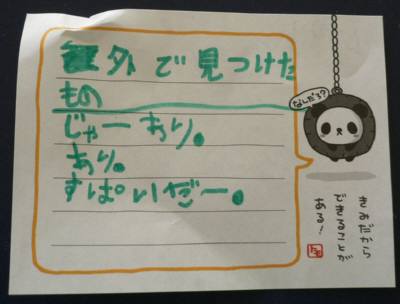 外で見つけた
もの
じゃーあり。
あり。
すぱいだー。
なんだろ?
きみだから
できることが
ある!